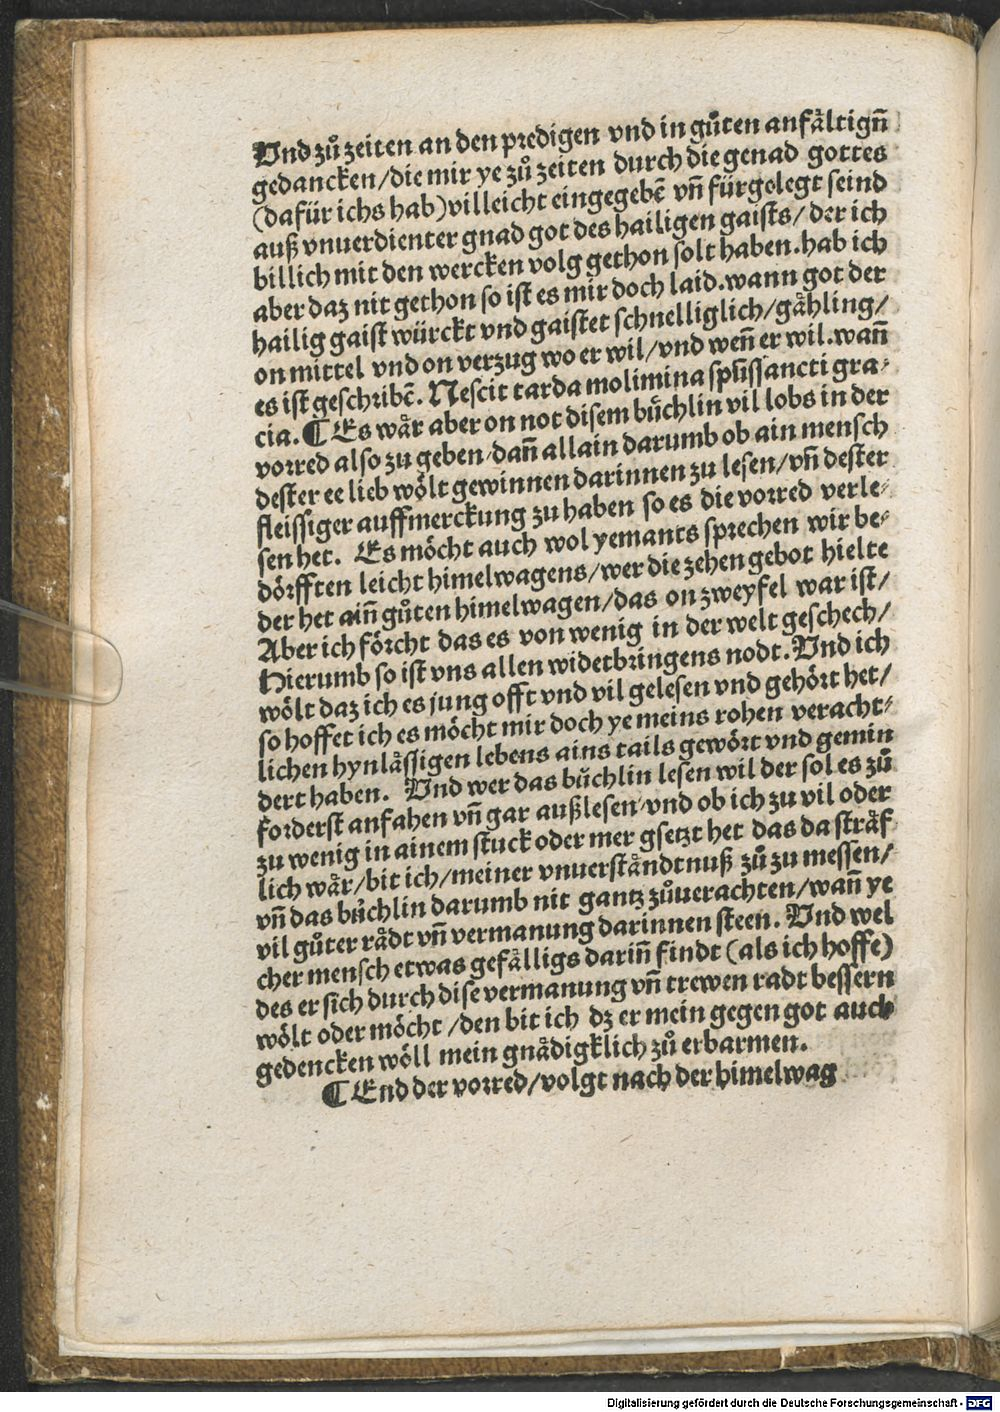 Vnd zuͦ zeiten an den predigen vnd in guͦten anfaͤltign̄
gedancken/die mir ye zuͦ zeiten durch die genad gottes
(dafür ichs hab)villeicht eingegebē vn̄ fürgelegt seind
auß vnuerdienter gnad got des hailigen gaists/ der ich
billich mit den wercken volg gethon solt haben.hab ich
aber daz nit gethon so ist es mir doch laid.wann got der
hailig gaist würckt vnd gaistet schnelliglich/gaͤhling/
on mittel vnd on verzug wo er wil/vnd wen̄ er wil.wan̄
es ist geschribē. Nescit tarda molimina spūssancti gra⸗
cia. ¶ Es waͤr aber on not disem buͤchlin vil lobs in der
vorred also zu geben/dan̄ allain darumb ob ain mensch
dester ee lieb woͤlt gewinnen darinnen zu lesen/vn̄ dester
fleissiger auffmerckung zu haben so es die vorred verle⸗
sen het. Es moͤcht auch wol yemants sprechen wir be⸗
doͤrfften leicht himelwagens/wer die zehen gebot hielte
der het ain̄ guͦten himelwagen/das on zweyfel war ist/
Aber ich foͤrcht das es von wenig in der welt geschech/
Hierumb so ist vns allen widerbringens nodt. Vnd ich
woͤlt daz ich es jung offt vnd vil gelesen vnd gehoͤrt het/
so hoffet ich es moͤcht mir doch ye meins rohen veracht⸗
lichen hynlaͤssigen lebens ains tails gewoͤrt vnd gemin
dert haben. Vnd wer das buͤchlin lesen wil der sol es zuͦ
forderst anfahen vn̄ gar außlesen/vnd ob ich zu vil oder
zu wenig in ainem stuck oder mer gsetzt het das da straͤf
lich waͤr/bit ich/meiner vnuerstaͤndtnuß zuͦ zu messen/
vn̄ das buͤchlin darumb nit gantz zuͦuerachten/wan̄ ye
vil guͦter raͤdt vn̄ vermanung darinnen steen. Vnd wel
cher mensch etwas gefaͤlligs darin̄ findt (als ich hoffe)
des er sich durch dise vermanung vn̄ trewen radt bessern
woͤlt oder moͤcht /den bit ich dz er mein gegen got auch
gedencken woͤll mein gnaͤdigklich zuͦ erbarmen.
¶ End der vorred/volgt nach der himelwag
Digitalisierung gefördert durch die Deutsche Forschungsgemeinschaft - DFG